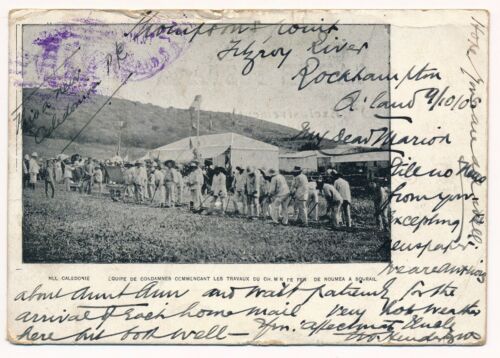 Thompson's Point
Fitzroy River
Rockhampton
Q'land 9/10/0
My Dear Marion
Still no news
from you
Excepting
newspaper
we are anxious
NLLE CALEDONIE EQUIPE DE CONDAMNES COMMENCANT LES TRAVAUX DU CH. MIN DE FER DE NOUMEA A BOURAIL
about Aunt Ann and wait patiently for the
arrival of each home mail very hot weather
here but both well - Yr affectionate Uncle
New
Caledonia
Hope you are all well